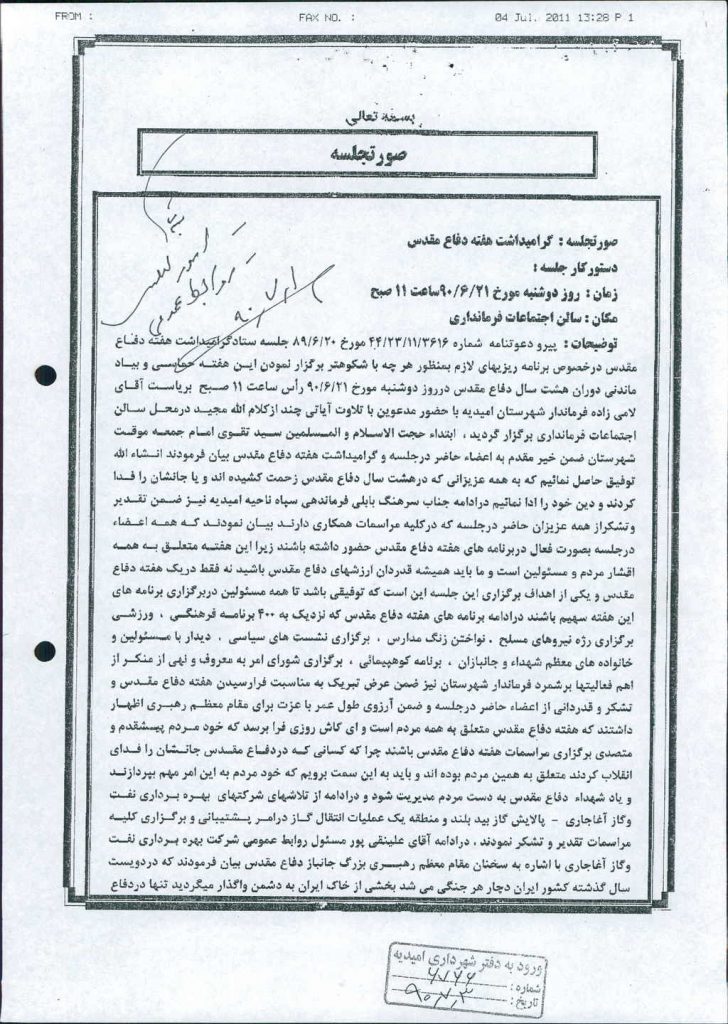 FROM :
FAX NO. :
04 Jul. 2011 13:28 P 1
بسمه تعالی
صورتجلسه
صورتجلسه : گرامیداشت هفته دفاع مقدس
دستور کار جلسه :
زمان : روز دوشنبه مورخ ۹۰/۶/۲۱ساعت ۱۱ صبح
مکان : سالن اجتماعات فرمانداری
روابط عمومی
توضیحات : پیرو دعوتنامه شماره ۴۴/۲۳/۱۱/۳۶۱۶ مورخ ۸۹/۶/۲۰ جلسه ستادگرامیداشت هفته دفاع
مقدس درخصوص برنامه ریزیهای لازم بمنظور هر چه با شکوهتر برگزار نمودن این هفته حماسی و بیاد
ماندنی دوران هشت سال دفاع مقدس درروز دوشنبه مورخ ۹۰/۶/۲۱ رأس ساعت ۱۱ صبح بریاست آقای
لامی زاده فرماندار شهرستان امیدیه با حضور مدعوین با تلاوت آیاتی چند ازکلام الله مجید درمحل سالن
اجتماعات فرمانداری برگزار گردید ، ابتداء حجت الاسلام و المسلمین سید تقوی امام جمعه موقت
شهرستان ضمن خیر مقدم به اعضاء حاضر درجلسه و گرامیداشت هفته دفاع مقدس بیان فرمودند انشاء الله
توفیق حاصل نمائیم که به همه عزیزانی که درهشت سال دفاع مقدس زحمت کشیده اند و یا جانشان را فدا
کردند و دین خود را ادا نمائیم درادامه جناب سرهنگ بابلی فرماندهی سپاه ناحیه امیدیه نیز ضمن تقدیر
وتشکراز همه عزیزان حاضر درجلسه که درکلیه مراسمات همکاری دارند بیان نمودند که همه اعضاء
درجلسه بصورت فعال دربرنامه های هفته دفاع مقدس حضور داشته باشند زیرا این هفته متعلق به همه
اقشار مردم و مسئولین است و ما باید همیشه قدردان ارزشهای دفاع مقدس باشید نه فقط دریک هفته دفاع
مقدس و یکی از اهداف برگزاری این جلسه این است که توفیقی باشد تا همه مسئولین دربرگزاری برنامه های
این هفته سهیم باشند درادامه برنامه های هفته دفاع مقدس که نزدیک به ۴۰۰ برنامه فرهنگی ، ورزشی
برگزاری رژه نیروهای مسلح ، نواختن زنگ مدارس ، برگزاری نشست های سیاسی ، دیدار با مسئولین و
خانواده های معظم شهداء و جانبازان ، برنامه کوهپیمائی ، برگزاری شورای امر به معروف و نهی از منکر از
اهم فعالیتها برشمرد فرماندار شهرستان نیز ضمن عرض تبریک به مناسبت فرارسیدن هفته دفاع مقدس و
تشکر و قدردانی از اعضاء حاضر درجلسه و ضمن آرزوی طول عمر با عزت برای مقام معظم رهبری اظهار
داشتند که هفته دفاع مقدس متعلق به همه مردم است و ای کاش روزی فرا برسد که خود مردم پیشقدم و
متصدی برگزاری مراسمات هفته دفاع مقدس باشند چرا که کسانی که دردفاع مقدس جانشان را فدای
انقلاب کردند متعلق به همین مردم بوده اند و باید به این سمت برویم که خود مردم به این امر مهم بپردازند
و یاد شهداء دفاع مقدس به دست مردم مدیریت شود و درادامه از تلاشهای شرکتهای بهره برداری نفت
وگاز آغاجاری - پالایش گاز بید بلند و منطقه یک عملیات انتقال گاز درامر پشتیبانی و برگزاری کلیه
مراسمات تقدیر و تشکر نمودند . درادامه آقای علینقی پور مسئول روابط عمومی شرکت بهره برداری نفت
وگاز آغاجاری با اشاره به سخنان مقام معظم رهبری بزرگ جانباز دفاع مقدس بیان فرمودند که دردویست
سال گذشته کشور ایران دچار هر جنگی می شد بخشی از خاک ایران به دشمن واگذار میگردید تنها دردفاع
ورود به دفتر شهرداری امیدیه
شماره : ۶۷۶۶
تاریخ : ۹۰،۷،۳